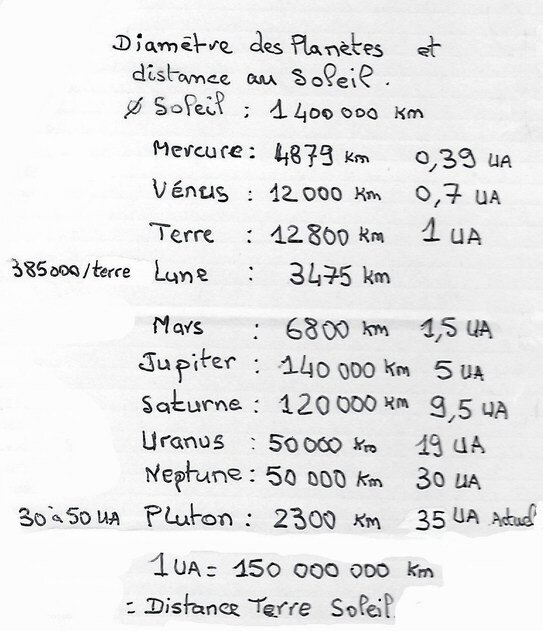 Diamètre des Planètes et
distance au Soleil.
Ø Soleil : 1 400 000 km
Mercure : 4879 km 0,39 UA
Vénus : 12 000 km 0,7 UA
Terre : 12 800 km 1 UA
385000/terre Lune : 3475 km
Mars : 6800 km 1,5 UA
Jupiter : 140 000 km 5 UA
Saturne : 120 000 km 9,5 UA
Uranus : 50 000 km 19 UA
Neptune : 50 000 km 30 UA
30 à 50 UA Pluton : 2300 km 35 UA Actuel
1 UA = 150 000 000 km
= Distance Terre Soleil.